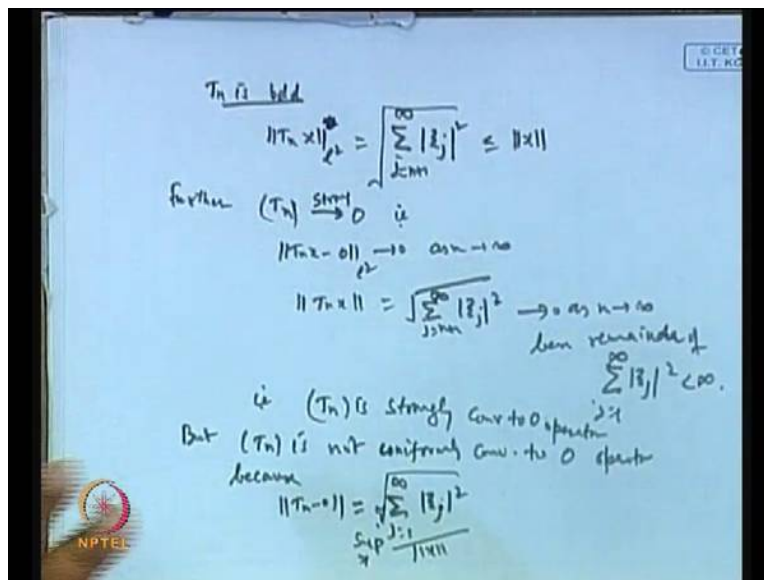 © CET
I.I.T. KG
Tn is bdd
||Tn x||_{l²} = √(∑_{j=n+1}^{∞} |ξj|²) ≤ ||x||
further (Tn) →^{strongly} 0 ie
||Tn x - 0||_{l²} → 0 as n → ∞
||Tn x|| = √(∑_{j=n+1}^{∞} |ξj|²) → 0 as n → ∞
remainder of
∑_{j=1}^{∞} |ξj|² < ∞.
ie (Tn) is strongly conv to 0 operator
But (Tn) is not uniformly conv. to 0 operator
because
||Tn - 0|| = √(∑_{j=1}^{∞} |ξj|²)
sup_x ||x||
NPTEL